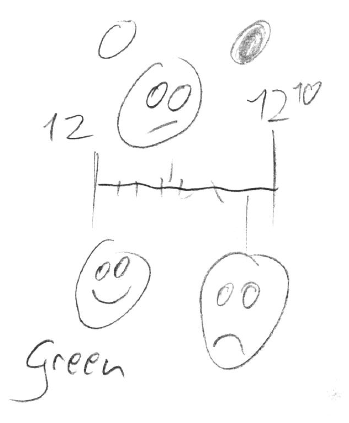 12
12 10
Green